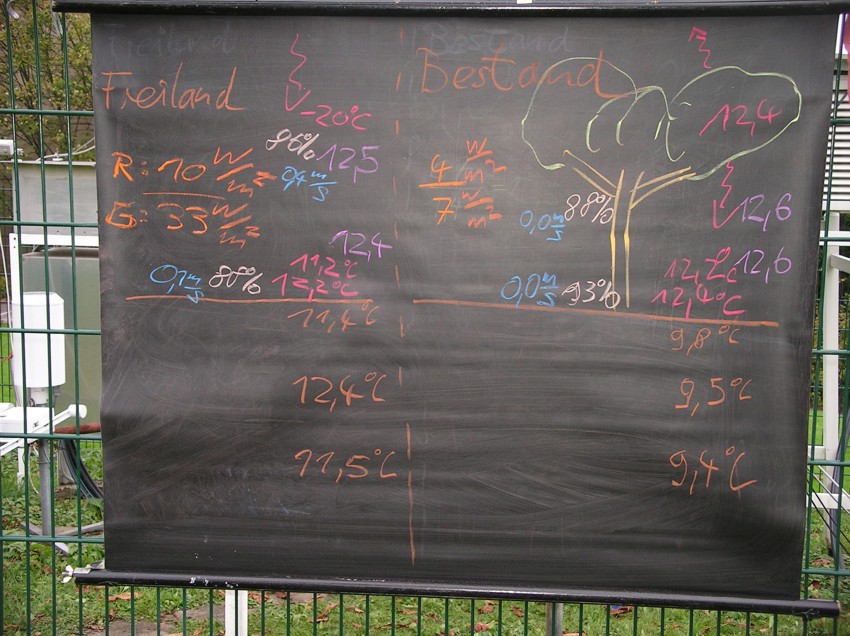 Freiland
-20°C
86% 12,5
R: 10 W/m²
0,4 m/s
G: 33 W/m²
12,4
11,2°C
0,1 m/s 88% 12,2°C
11,4°C
12,4°C
11,5°C
Bestand
12,4
4 W/m²
7 W/m²
88% 12,6
0,0 m/s
12,2°C 12,6
0,0 m/s 93% 12,4°C
9,8°C
9,5°C
9,4°C